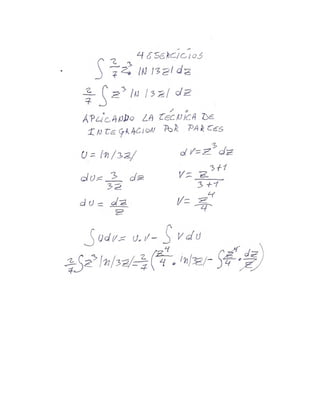 4 EJERCICIOS
∫ 2/7 z³. ln|3z| dz
2/7 ∫ z³ ln|3z| dz
APLICANDO LA TÉCNICA DE
INTEGRACION POR PARTES
u = ln|3z| dv = z³ dz
du = 3/3z dz v = z^(3+1)/(3+1)
du = dz/z v = z⁴/4
∫ u dv = u.v - ∫ v du
2/7 ∫ z³ ln|3z| = 2/7 (z⁴/4 . ln|3z| - ∫ z⁴/4 . dz/z)